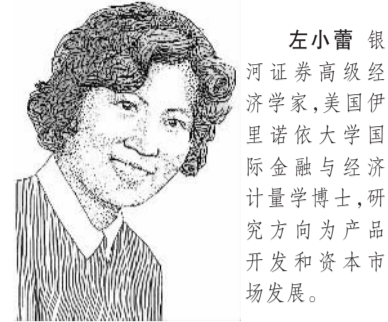 左小蕾 银
河证券高级经
济学家,美国伊
里诺依大学国
际金融与经济
计量学博士,研
究方向为产品
开发和资本市
场发展。